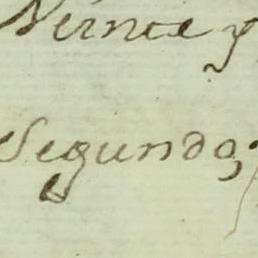 Veinte y
Segundo,